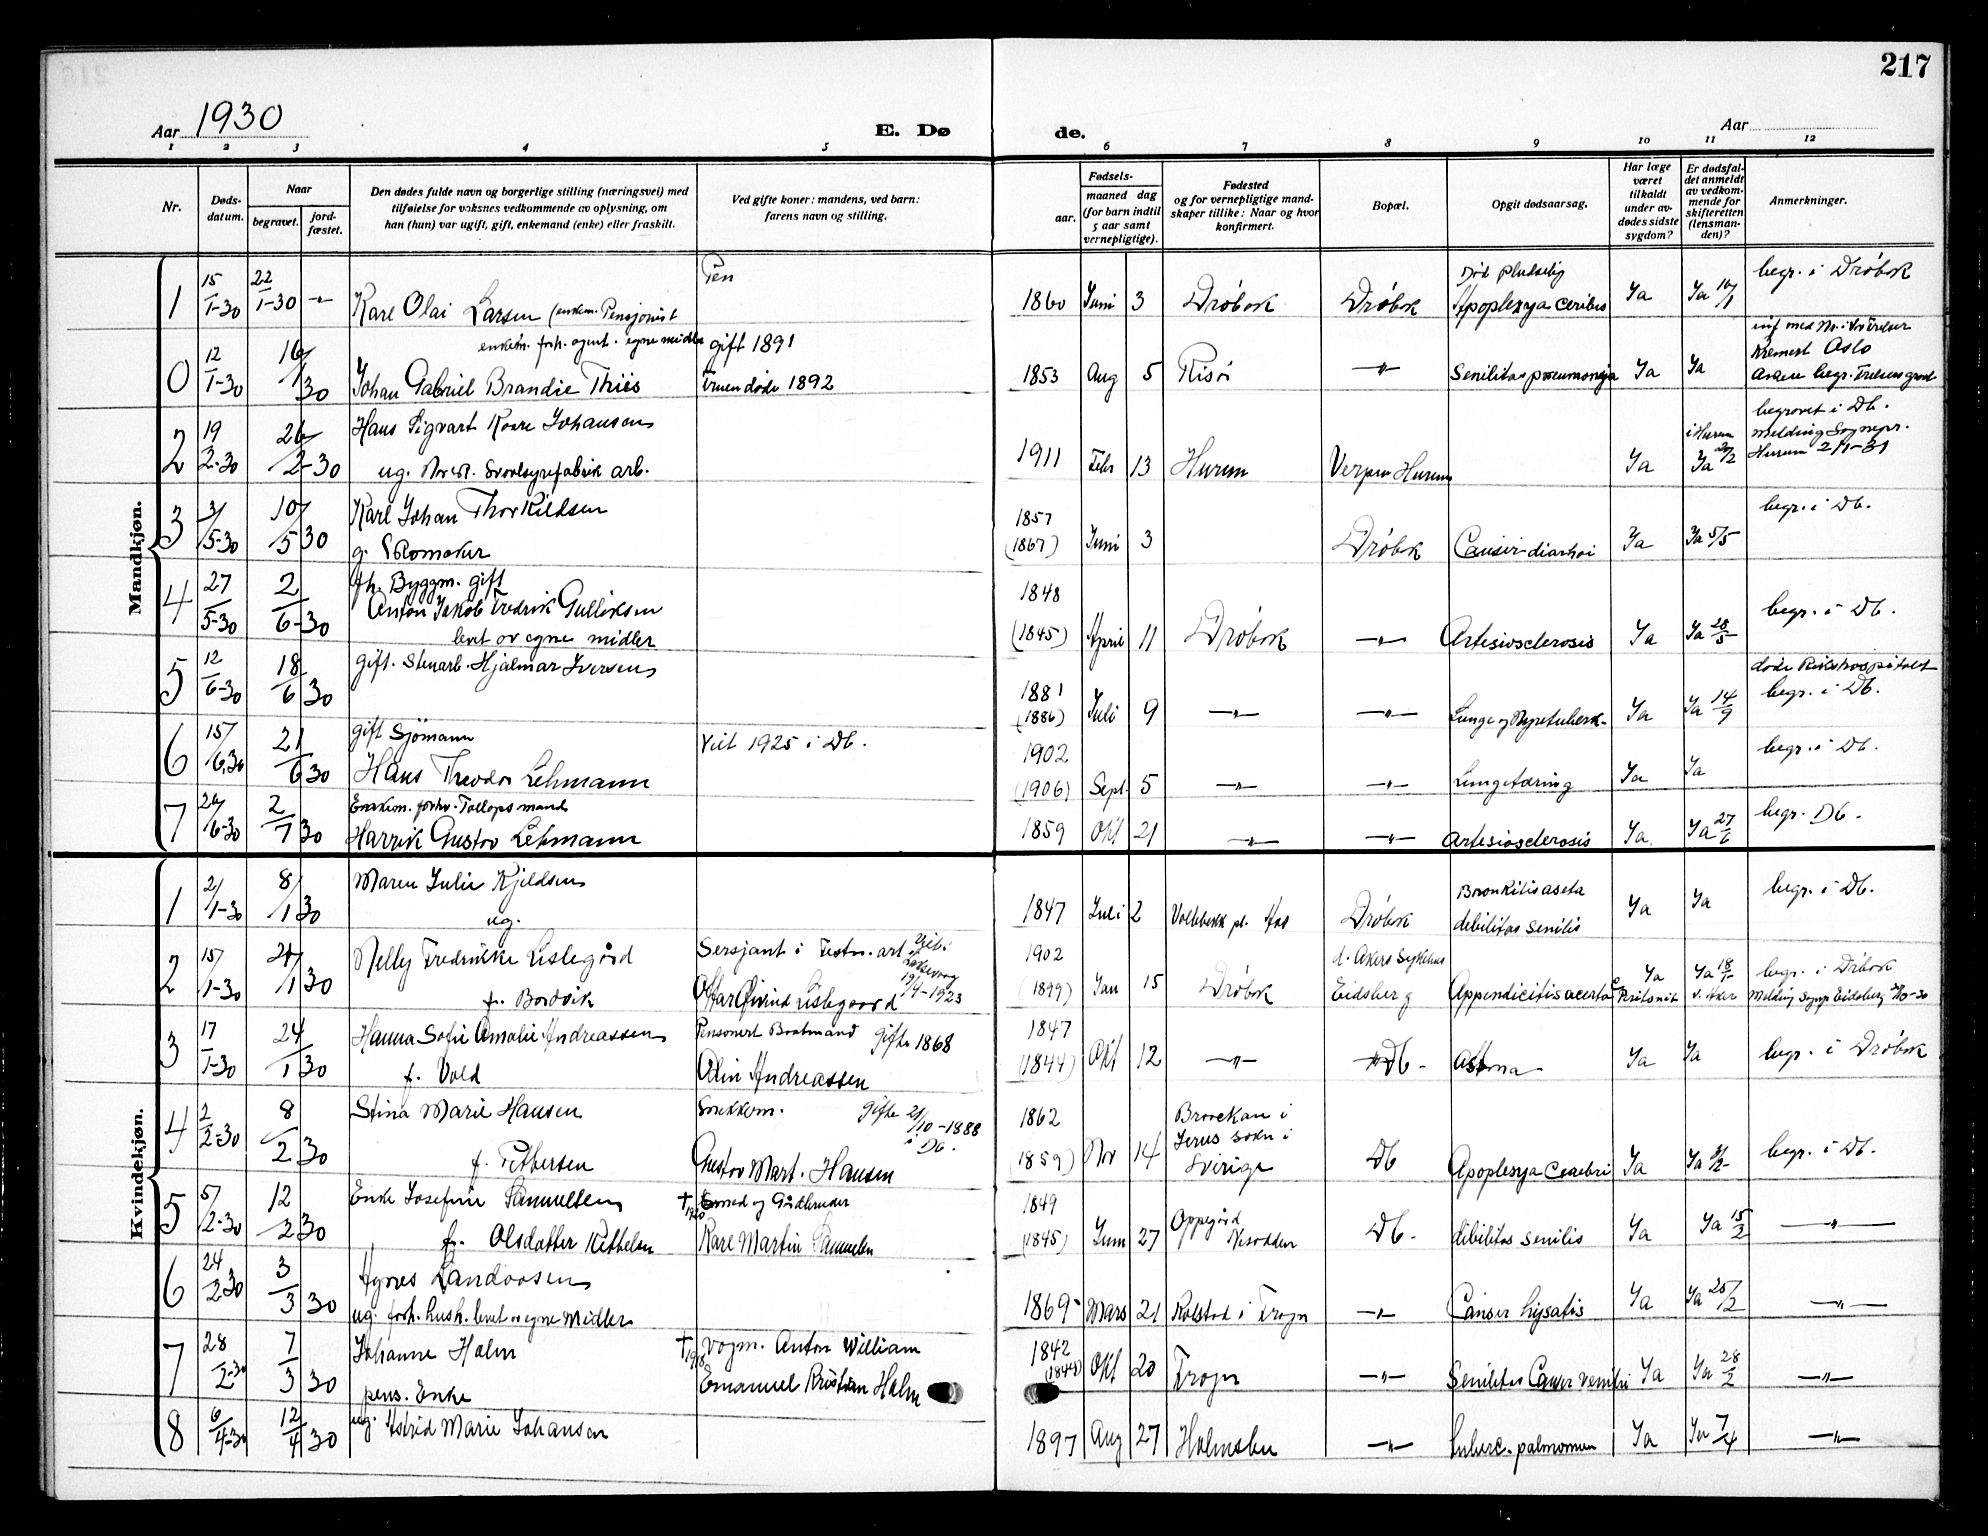 217
Aar 1930
E. Dø
de.
Aar
1 2 3 4 5 6 7 8 9 10 11 12
Nr.
Døds-
datum.
Naar
begravet.
jord-
fæstet.
Den dødes fulde navn og borgerlige stilling (næringsvei) med
tilføielse for voksnes vedkommende av oplysning, om
han (hun) var ugift, gift, enkemand (enke) eller fraskilt.
Ved gifte koner: mandens, ved barn:
farens navn og stilling.
Fødsels-
aar.
maaned dag
(for barn indtil
5 aar samt
vernepligtige).
Fødested
og for vernepligtige mand-
skaper tillike: Naar og hvor
konfirmert.
Bopæl.
Opgit dødsaarsag.
Har læge
været
tilkaldt
under av-
dødes sidste
sygdom?
Er dødsfal-
det anmeldt
av vedkom-
mende for
skifteretten
(lensman-
den)?
Anmerkninger.
Mandkjøn.
1 15/1-30 22/1-30 -"-
Karl Olai Larsen (enkem. Pensjonist
1860 Juni 3 Drøbak Drøbak
Død pludselig
Apoplexya ceribri Ja Ja 16/1
begr. i Drøbak
0 12/1-30 16/1 30
enkem. forh. agent. egne midler
Johan Gabriel Brandie Thiis
gift 1891
Fruen døde 1892
1853 Aug 5 Risør -"- Senilitas pneumonia Ja Ja
Kremert Oslo
2 19/2-30 26/2-30
Hans Sigvart Kaare Johansen
ug. Svovlsyrefabrik arb.
1911 Febr 13 Hurum Verpen Hurum Ja
i Hurum
Ja 20/2
begravet i Db.
melding Sognepr.
Hurum 2/1-31
3 3/5-30 10/5 30
Karl Johan Thorkildsen
g. Skomaker
1857
(1867) Juni 3 Drøbak Canser-diarhoi Ja Ja 5/5
begr. i Db.
4 27/5-30 2/6-30
fh. Byggm. gift
Anton Jakob Fredrik Gulliksen
levet av egne midler
1848
(1845) April 11 Drøbak -"- Artesiosclerosis Ja Ja 28/5
begr. i Db.
5 12/6-30 18/6 30
gift. Stenarb. Hjalmar Iversen
1881
(1886) Juli 9 -"- -"- Lunge og Nyretuberk- Ja Ja 14/9
døde Rikshospitalet
begr. i Db.
6 15/6 30 21/6 30
gift Sjømann
Hans Theodor Lehmann
Viet 1925 i Db.
1902
(1906) Sept. 5 -"- -"- Lungetæring Ja Ja
begr. i Db.
7 26/6-30 2/7 30
Enkem. forhv. Tollopsmand
Harrik Gustav Lehmann
1859 Okt 21 -"- -"- Artesiosclerosis Ja. Ja 27/6
begr. Db.
Kvindekjøn.
1 2/1-30 8/1 30
Maren Julie Kjeldsen
ug.
1847 Juli 2 Drøbak
Bronkitis aseta
debilitas senilis Ja Ja
begr. i Db.
2 15/1-30 21/1 30
Nelly Fredrikke Lislegård
f. Bordvik
Sersjant i Festn. art
Ottar Øivind Lislegaard 19/4-1923
1902
(1899) Jan 15 Drøbak
d. Akers Sykehus
Eidsberg
Appendicitis acerta Peritonit Ja
Ja 18/1
v. Aker
begr. i Drøbak
Melding Sogpr. Eidsberg
3 17/1-30 24/1 30
Hanna Sofie Amalie Andreassen
f. Vold
Pensonert Baatmand gifte 1868
Olin Andreassen
1847
(1844) Okt 12 -"- Db- Astma Ja Ja
begr. i Drøbak
4 2/2-30 8/2 30
Stina Marie Hansen
f. Pettersen
Snekkerm. gifte 21/10-1888
i Db.
Gustav Mart. Hansen
1862
(1859) Nov 14
i
Sverige
Db Apoplexya Cerebri Ja Ja
begr. i Db.
5 5/2-30 12/2 30
Enke Josefine Samuelsen
f. Olsdatter Kethelsen
† 1920
Smed og Gårdbruker
Karl Martin Samuelsen
1849
(1845) Juni 27
Oppegård
Nesodden
Db. debilitas senilis Ja Ja 15/2 -"-
6 24/2 30 3/3 30
Agnes Landvosen
ug. forh. hush. levet av egne Midler
1869 Mars 21 Kolstad i Frogn -"- Canser hysatis Ja Ja 25/2 -"-
7 28/2-30 7/3 30
Johanne Holm
pens. Enke
† 1918
Vogm. Anton William
Emanuel Kristian Holm
1842
(1844) Okt 20 Frogn -"- Senilitas Canser ventri Ja Ja 28/2 -"-
8 6/4-30 12/4 30
ug. Astrid Marie Johansen
1897 Aug 27 Holmsbu -"- Tuberc. palmomum Ja Ja 7/4 -"-